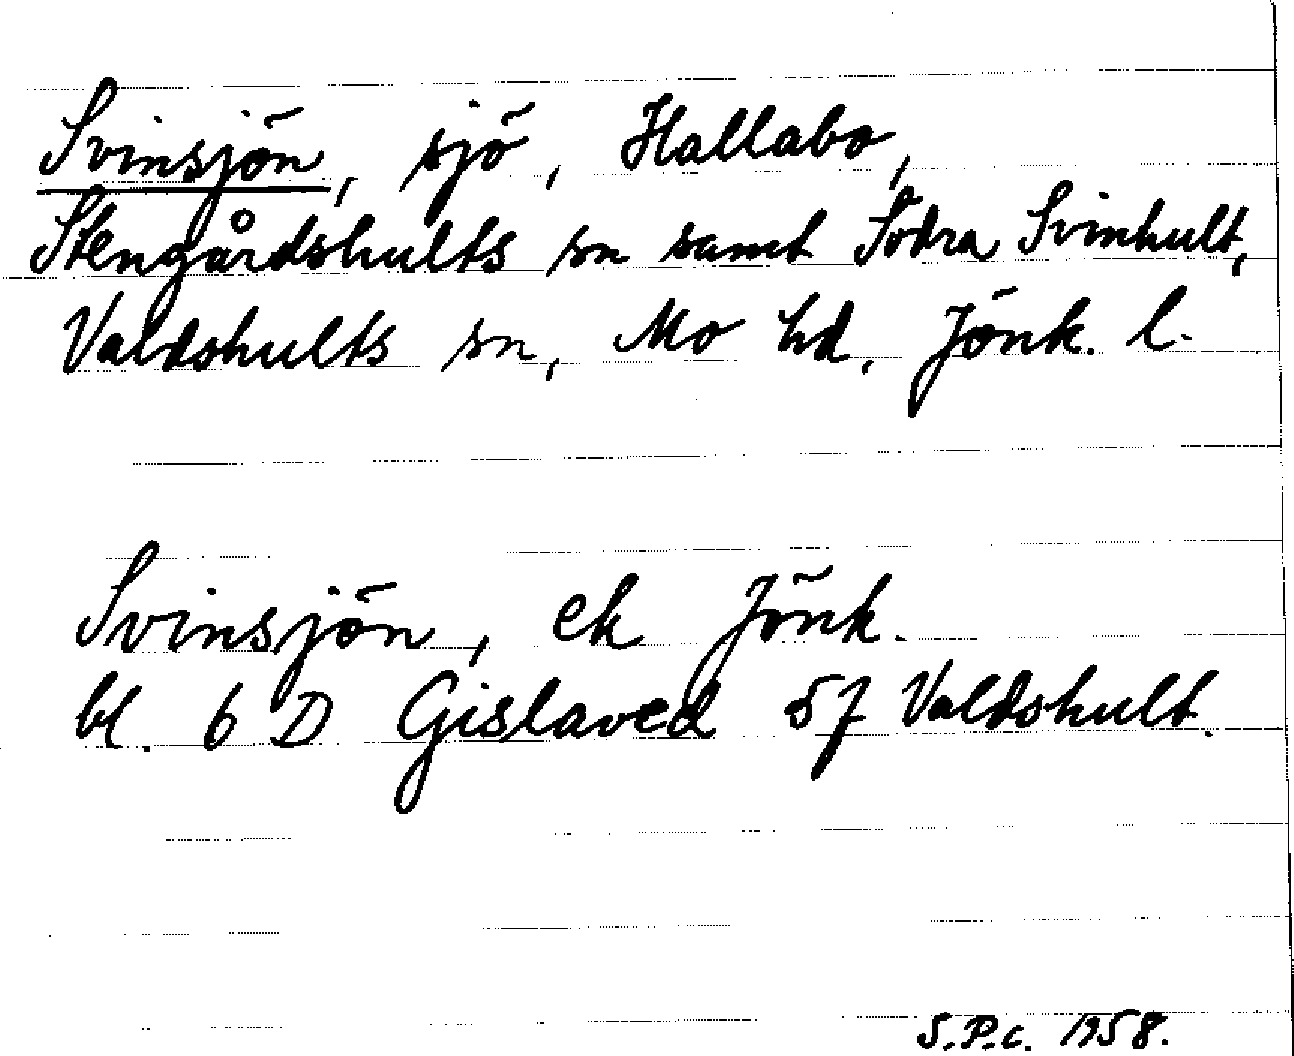 Svinsjön, sjö, Hallabo,
Stengårdshults sn samt Södra Svinhult,
Valdshults sn, Mo hd, Jönk. l.
Svinsjön, ek Jönk.
bl. 6 D Gislaved 5f Valdshult.
S.P.C. 1958.